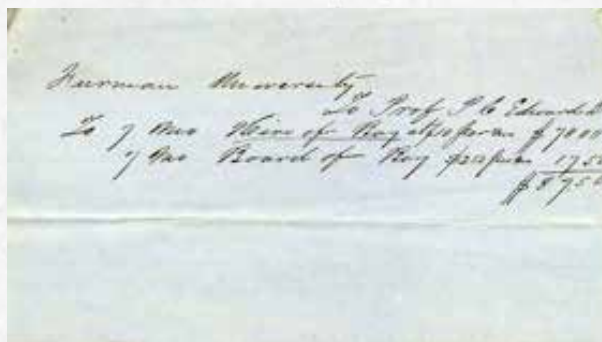 Furman University
To Prof P C Edwards
To 7 Mo Hire of Boy at $10 per m $7000
7 Mo Board of Boy 1750
$8750